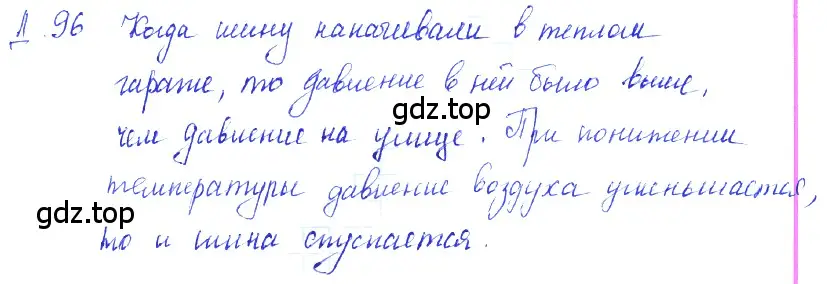 Д. 96 Когда шину накачивали в теплом
гараже, то давление в ней было выше,
чем давление на улице. При понижении
температуры давление воздуха уменьшается,
то и шина спускается.
gdz.top
gdz.top
gdz.top